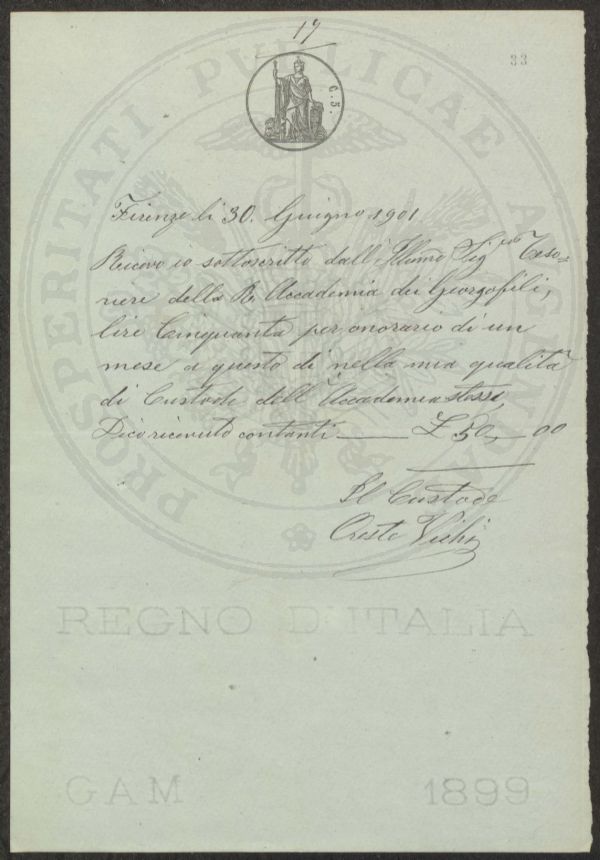 19
33
C. 5.
PROSPERITATI PUBLICAE AUGENDAE
Firenze li 30. Giugno 1901.
Ricevo io sottoscritto dall' Illumo Sigre Teso=
riere della R. Accademia dei Georgofili,
lire Cinquanta per onorario di un
mese a questo dì nella mia qualità
di Custode dell' Accademia stessa,
Dico ricevuto contanti — £ 50, — 00
Il Custode
Oreste
REGNO D'ITALIA
GAM 1899